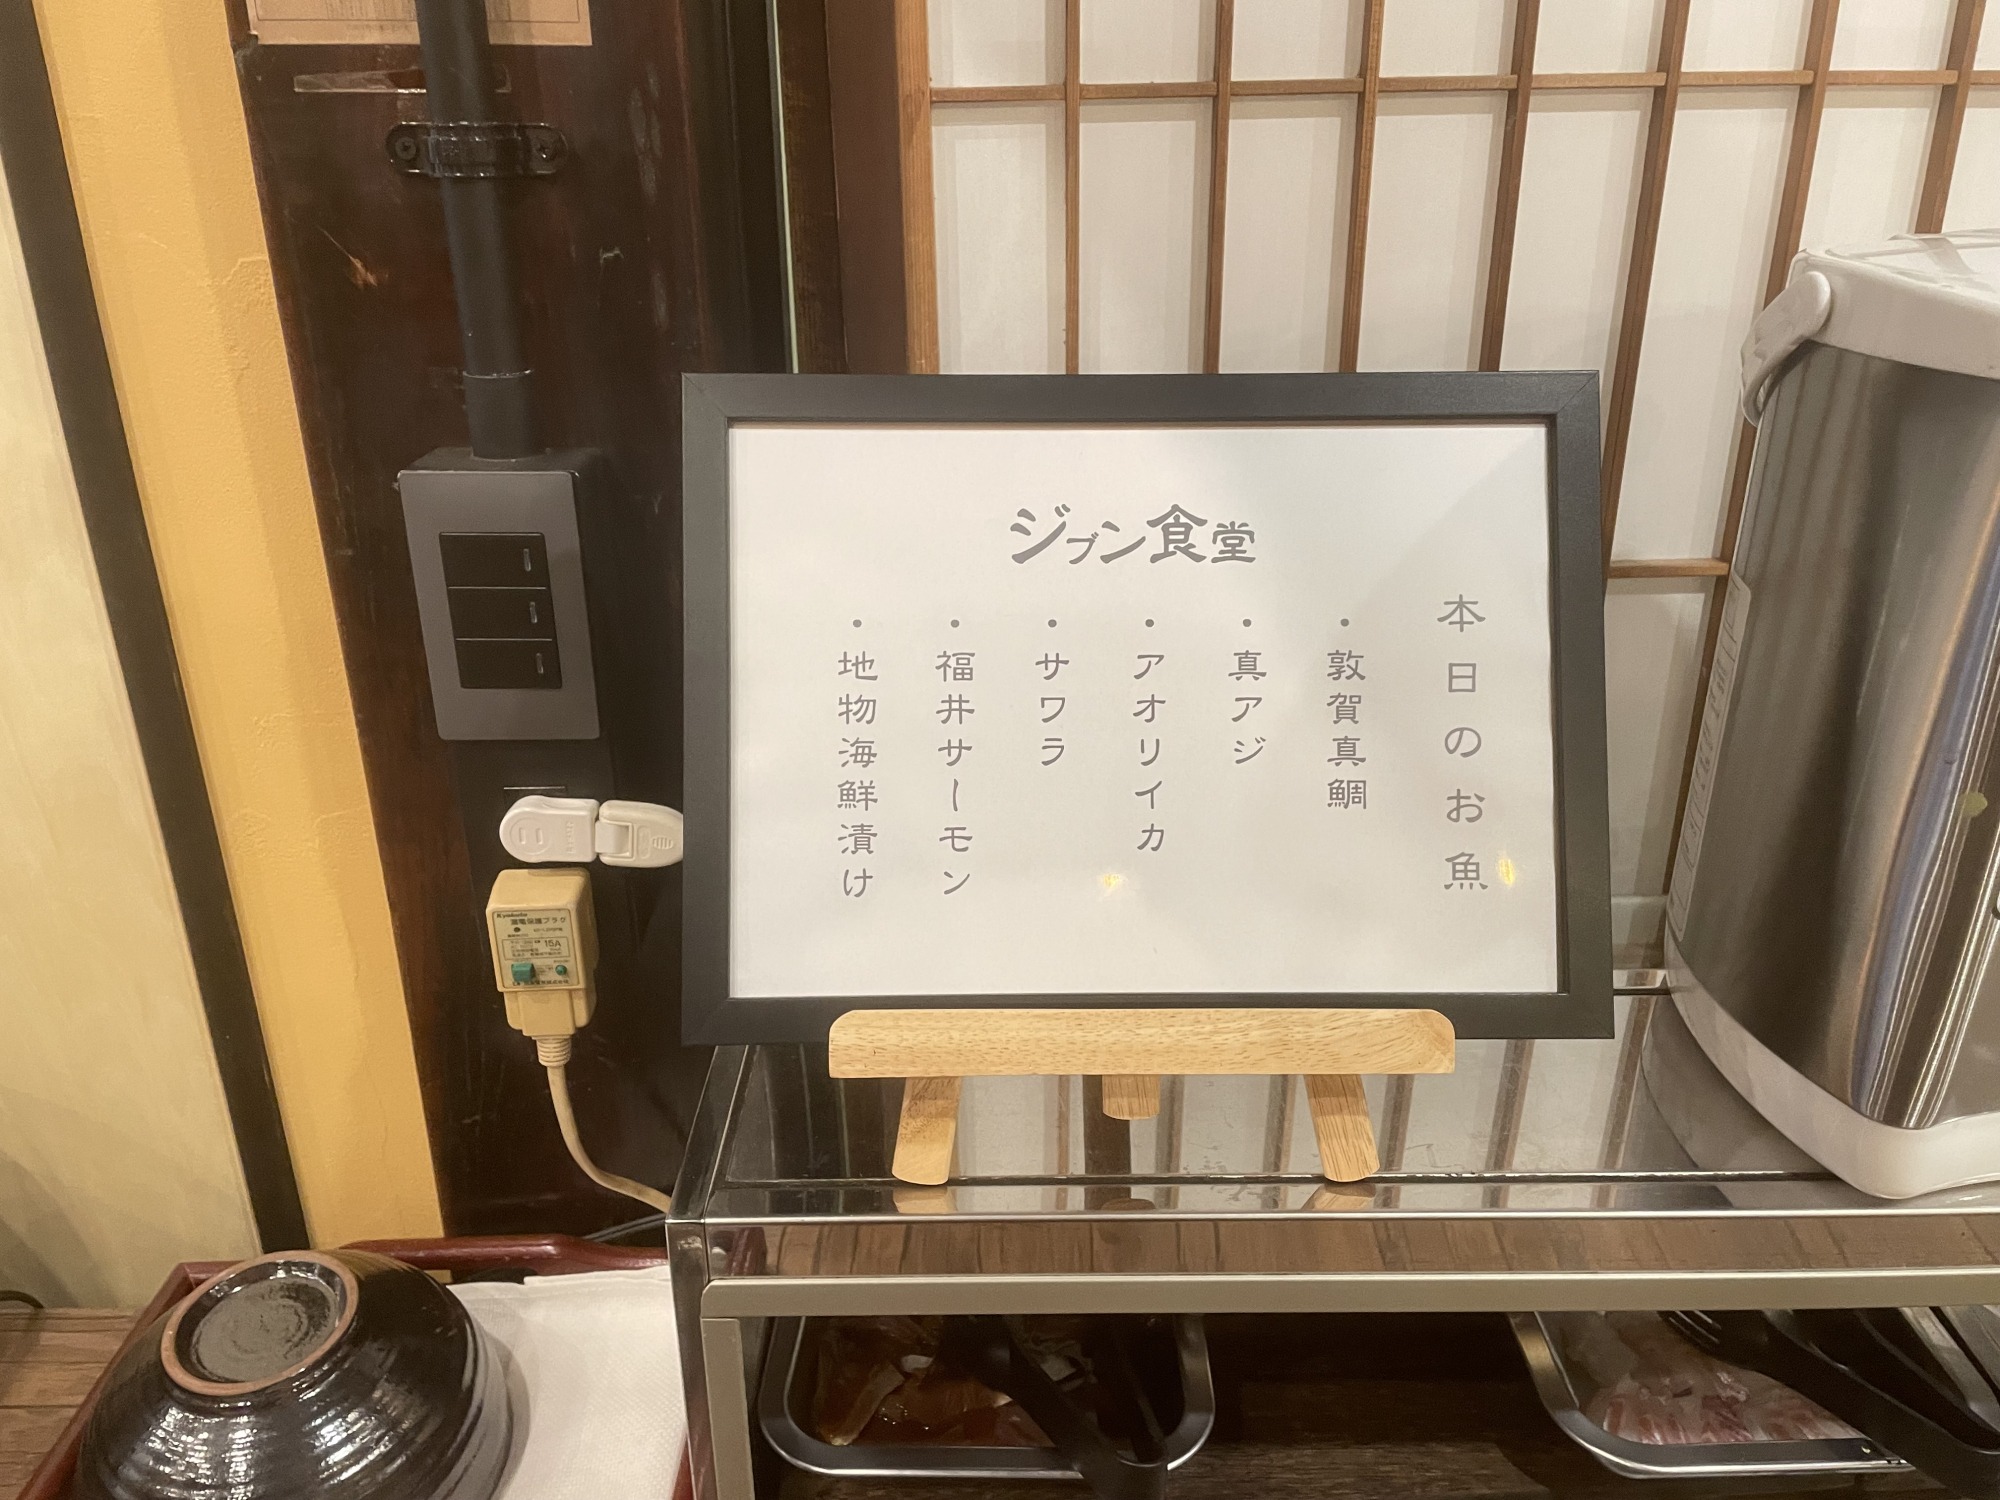 ジブン食堂
本日のお魚
・敦賀真鯛
・真アジ
・アオリイカ
・サワラ
・福井サーモン
・地物海鮮漬け
漏電保護プラグ
15A